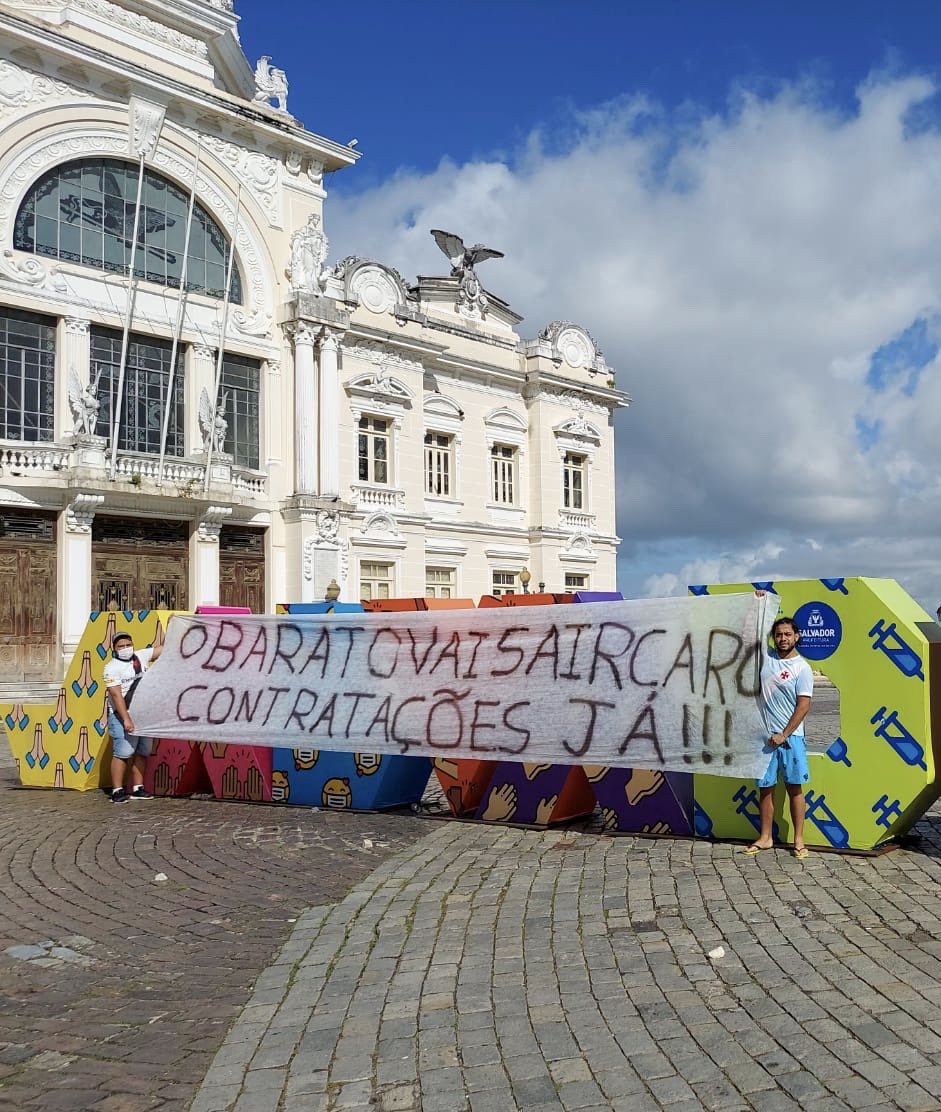 O BARATO VAI SAIR CARO
CONTRATAÇÕES JÁ!!!
SALVADOR
PREFEITURA